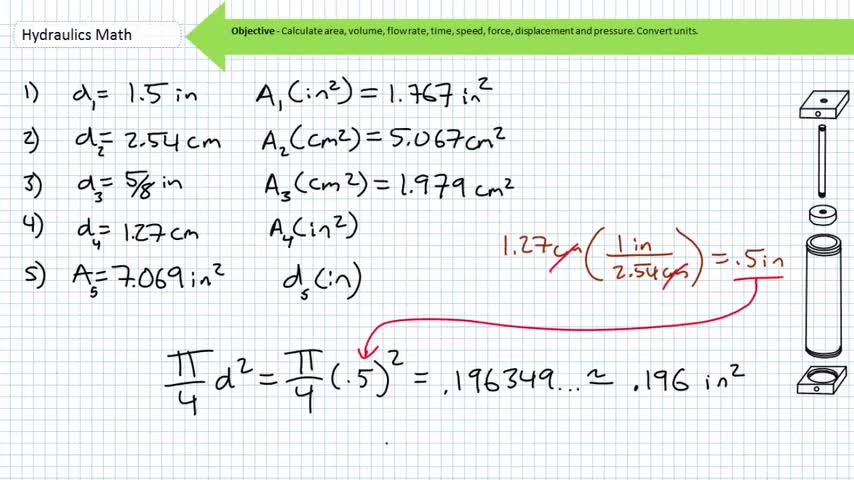 Hydraulics Math
Objective - Calculate area, volume, flow rate, time, speed, force, displacement and pressure. Convert units.
1) d₁ = 1.5 in A₁(in²) = 1.767 in²
2) d₂ = 2.54 cm A₂(cm²) = 5.067 cm²
3) d₃ = 5/8 in A₃(cm²) = 1.979 cm²
4) d₄ = 1.27 cm A₄(in²)
1.27 cm (1 in / 2.54 cm) = .5 in
5) A₅ = 7.069 in² d₅(in)
π/4 d² = π/4 (.5)² = .196349... ≈ .196 in²